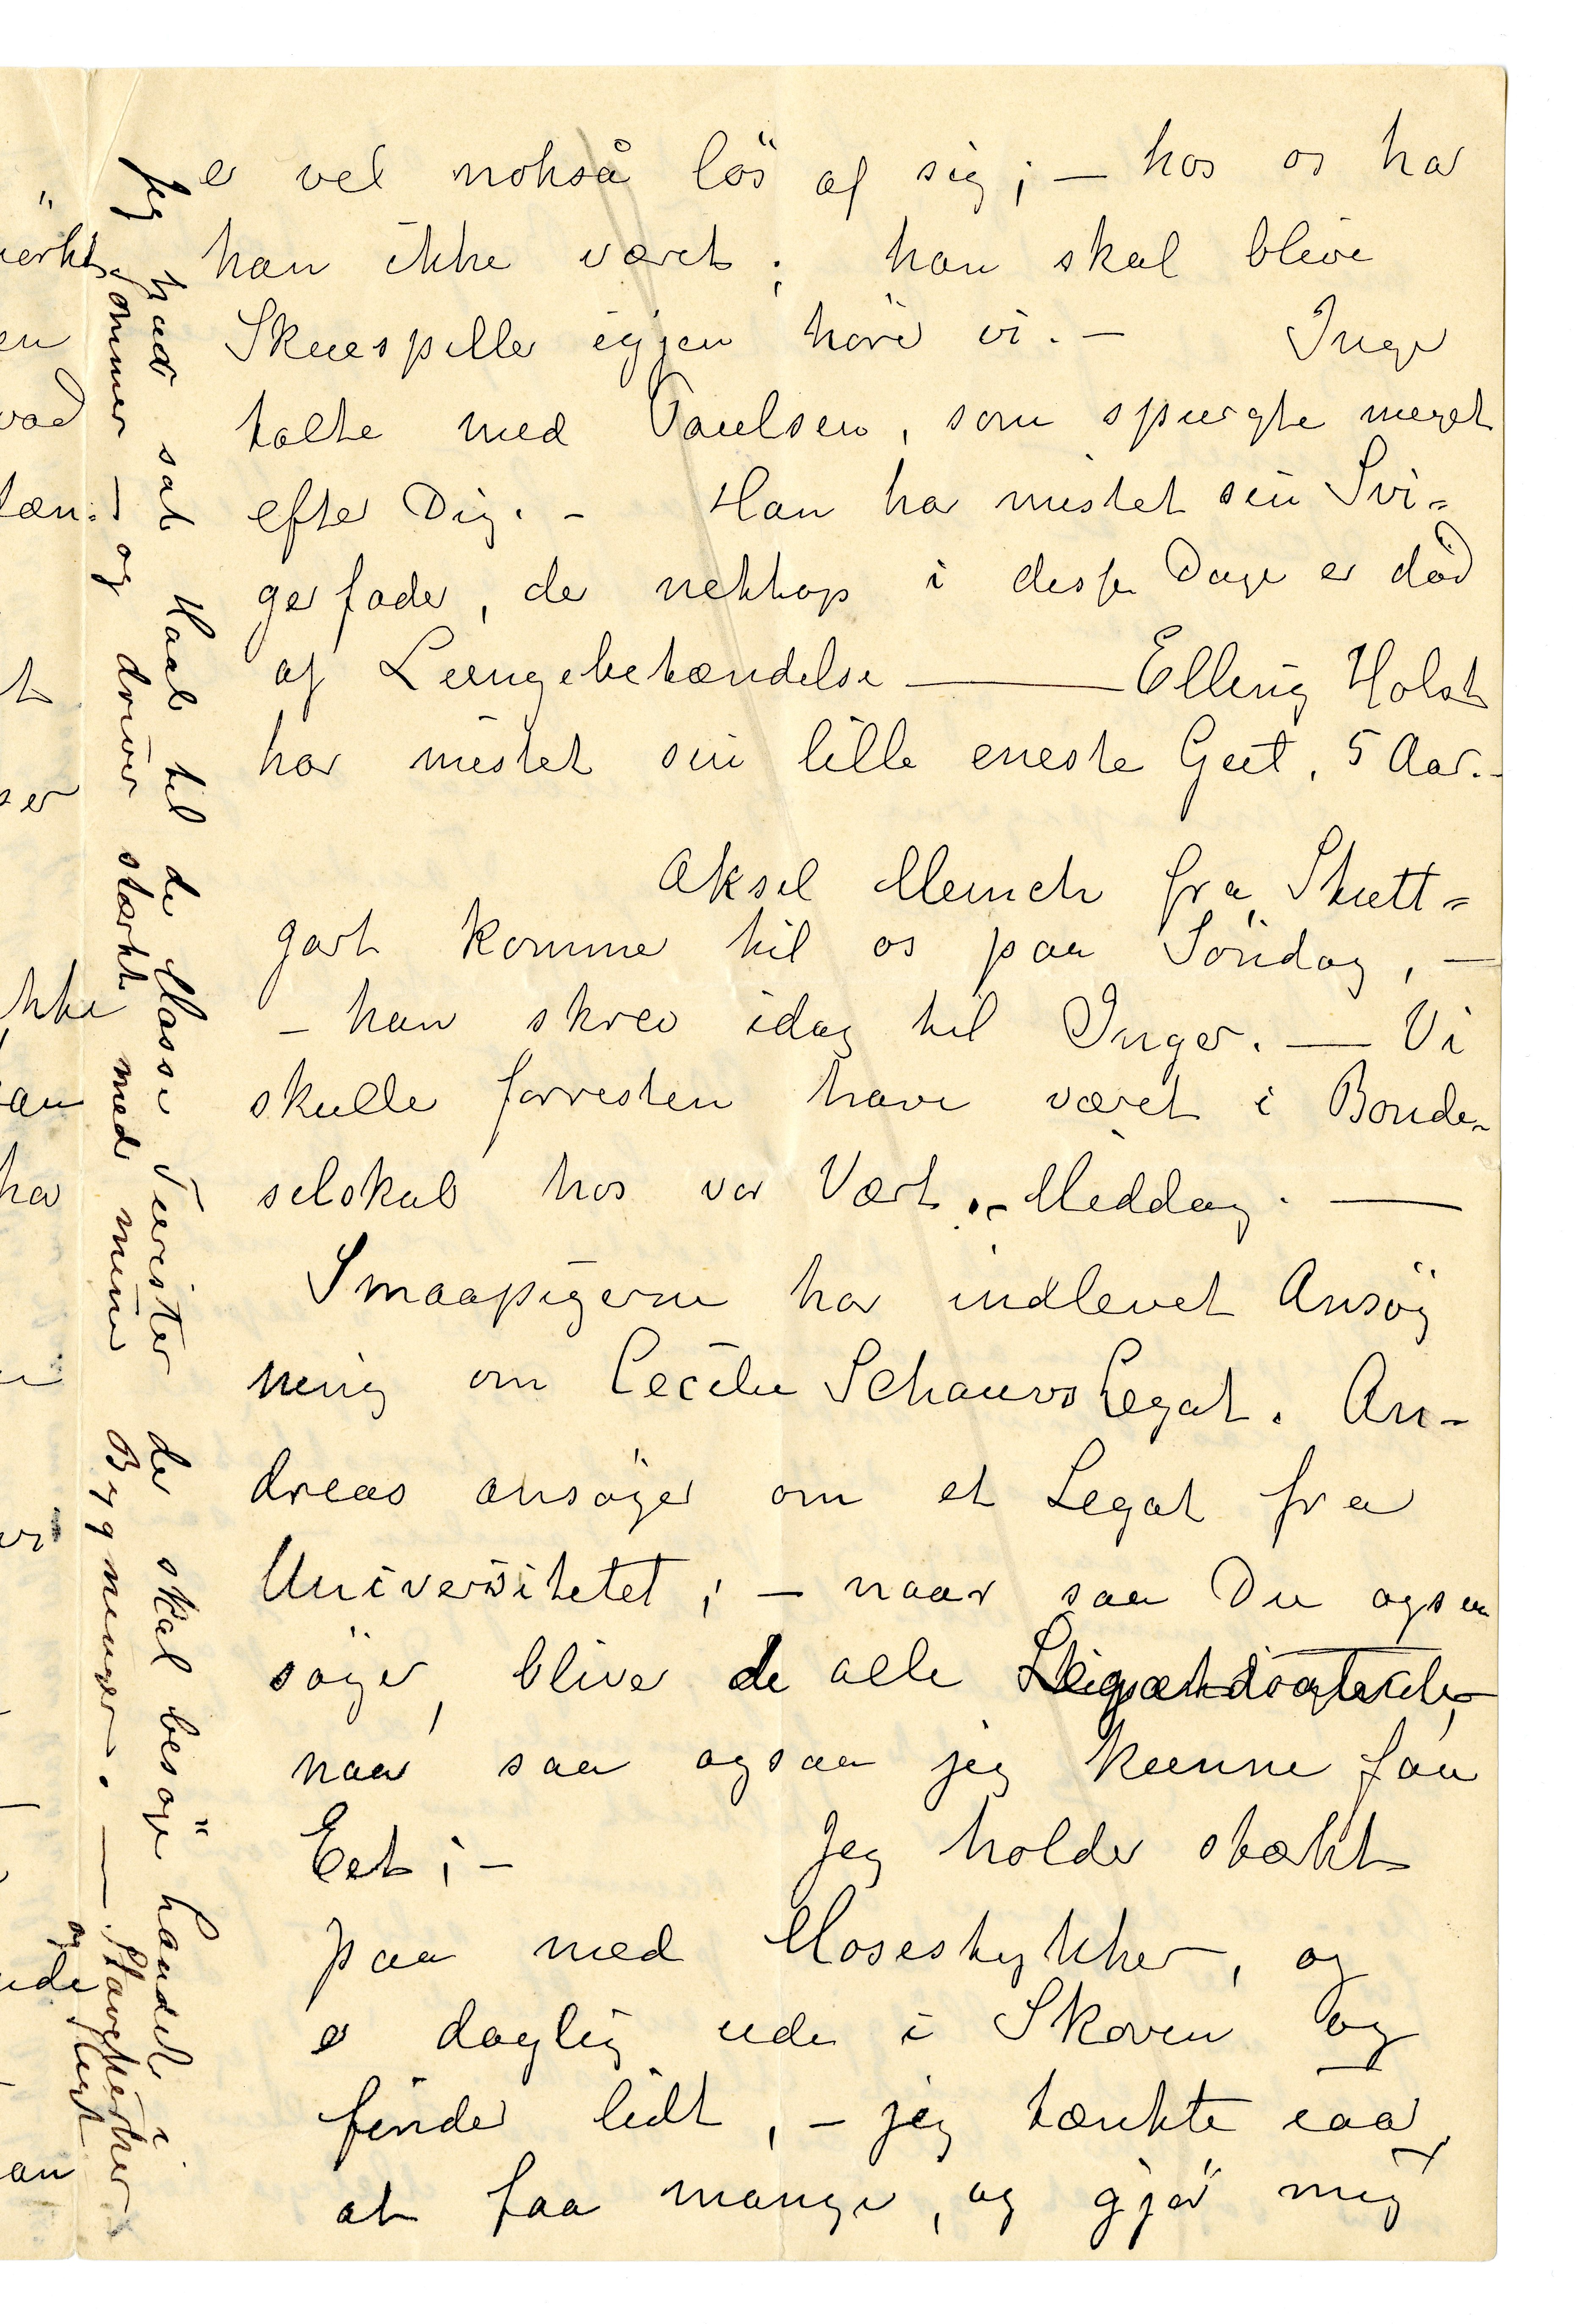 er vel nokså lös af sig; — hos os har
han ikke været; han skal blive
Skuespiller igjen hörer vi. — Inger
talte med Paulsen, som spurgte meget
efter Dig. — Han har mistet sin Svi-
gerfader, der nettop i disse Dage er död
af Lungebetændelse — Elling Holst
har mistet sin lille eneste Gut, 5 Aar. —
Aksel Munch fra Stutt-
gart kommer til os paa Söndag, —
— han skrev idag til Inger. — Vi
skulle forresten have været i Bonde-
selskab hos vor Vært. — Middag. —
Smaapigerne har indlevet Ansøg
ning om Cecilie Schouvs Legat. An-
dreas ansöger om et Legat fra
Universitetet; — naar saa Du ogsaa
søger, bliver de alle
naar saa ogsaa jeg kunne faa
Eet; — Jeg holder stærkt
paa med Mosestykker, og
er daglig ude i Skoven og
finder lidt, — jeg tænkte iaar
at faa mange, og gjör mig
Jeg har sat Haab til de Masse Turister der skal besöge Landet i
Sommer — og driver stærkt med mine Bygninger. — Stavkirker
og
ærkt
en
vad
tæn:
t
ser
kke
an
har
vi
nde
an